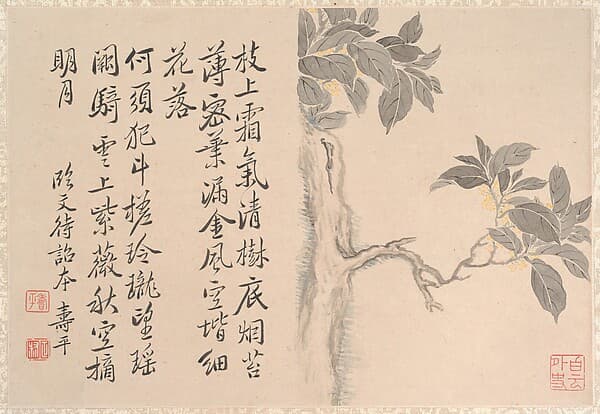 枝上霜氣清樹底烟苔
薄密葉漏金風空堦細
花落
何須犯斗槎玲瓏望瑤
闕騎雲上紫薇秋空摘
明月
臨文待詔本 壽平
白雲外史